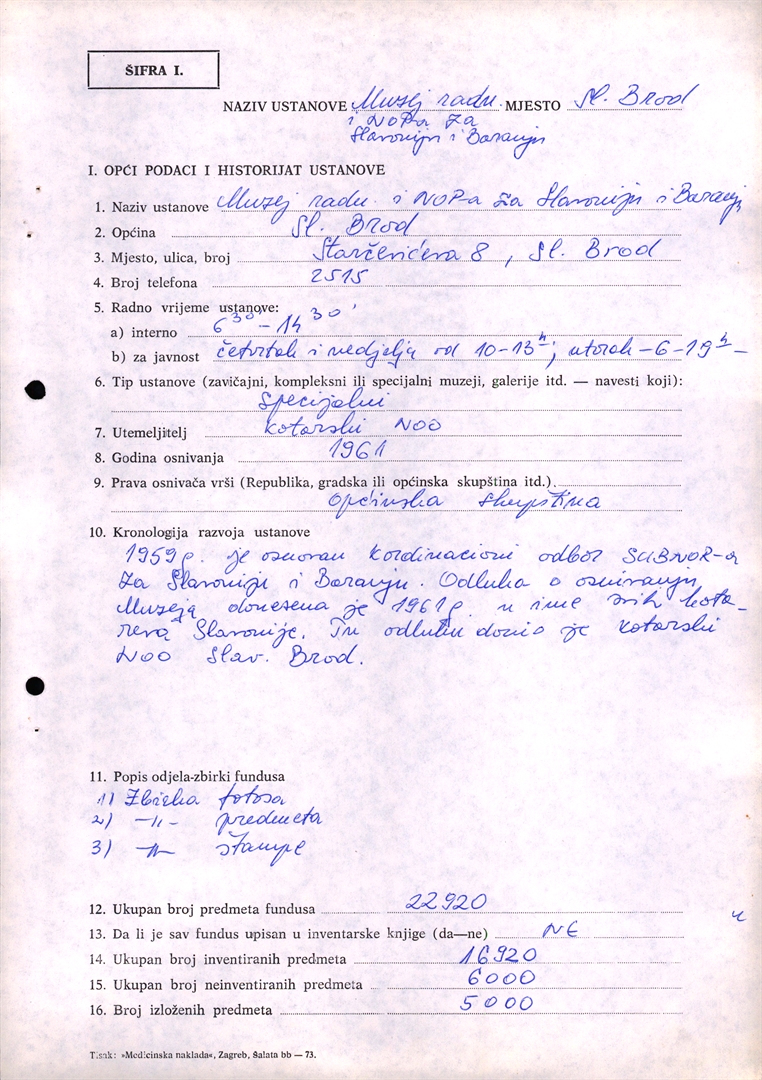 ŠIFRA I.
NAZIV USTANOVE Muzej radu MJESTO Sl. Brod
i NOP-a za
Slavoniju i Baranju
I. OPĆI PODACI I HISTORIJAT USTANOVE
1. Naziv ustanove Muzej radu i NOP-a za Slavoniju i Baranju
2. Općina Sl. Brod
3. Mjesto, ulica, broj Starčevićeva 8, Sl. Brod
4. Broj telefona 2515
5. Radno vrijeme ustanove:
a) interno 6 30 - 14 30'
b) za javnost četvrtak i nedjelja od 10-13 h; utorak - 6-19 h -
6. Tip ustanove (zavičajni, kompleksni ili specijalni muzeji, galerije itd. — navesti koji):
specijalni
7. Utemeljitelj kotarski NOO
8. Godina osnivanja 1961
9. Prava osnivača vrši (Republika, gradska ili općinska skupština itd.)
Općinska Skupština
10. Kronologija razvoja ustanove
1959 g. je osnovan Kordinacioni odbor SUBNOR-a
za Slavoniju i Baranju. Odluka o osnivanju
Muzeja donesena je 1961 g. u ime svih kota-
reva Slavonije. Tu odluku donio je kotarski
NOO Slav. Brod.
11. Popis odjela-zbirki fundusa
1) Zbirka fotosa
2) -"- predmeta
3) -"- štampe
12. Ukupan broj predmeta fundusa 22920
13. Da li je sav fundus upisan u inventarske knjige (da—ne) NE
14. Ukupan broj inventiranih predmeta 16920
15. Ukupan broj neinventiranih predmeta 6000
16. Broj izloženih predmeta 5000
Tisak: »Medicinska naklada«, Zagreb, Šalata bb — 73.